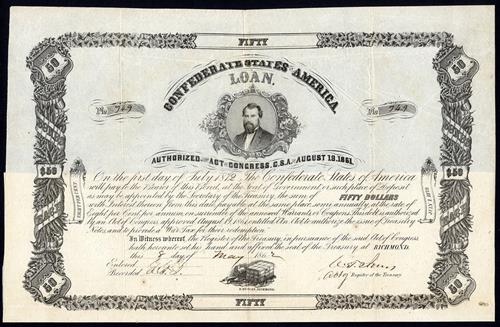 FIFTY
50 50
CONFEDERATE STATES OF AMERICA.
LOAN.
No 749 No 749
AUTHORIZED BY ACT OF CONGRESS, C.S.A. OF AUGUST 19, 1861.
On the first day of July 1872 The Confederate States of America
will pay to the Bearer of this Bond, at the Seat of Government or such place of Deposit
as may be appointed by the Secretary of the Treasury, the sum of FIFTY DOLLARS
with Interest thereon from this date, payable at the same place semi annually, at the rate of
Eight per Cent per annum, on surrender of the annexed Warrants or Coupons. This debt is authorized
by Act of Congress, approved August 19, 1861, entitled An Act to authorize the issue of Treasury
Notes, and to provide a War Tax for their redemption.
$50 $50
In Witness whereof, the Register of the Treasury, in pursuance of the said Act of Congress
hath hereunto set his hand and affixed the seal of the Treasury at RICHMOND,
this 8 day of May 1862
Entered
Recorded
Register of the Treasury
50 50
FIFTY